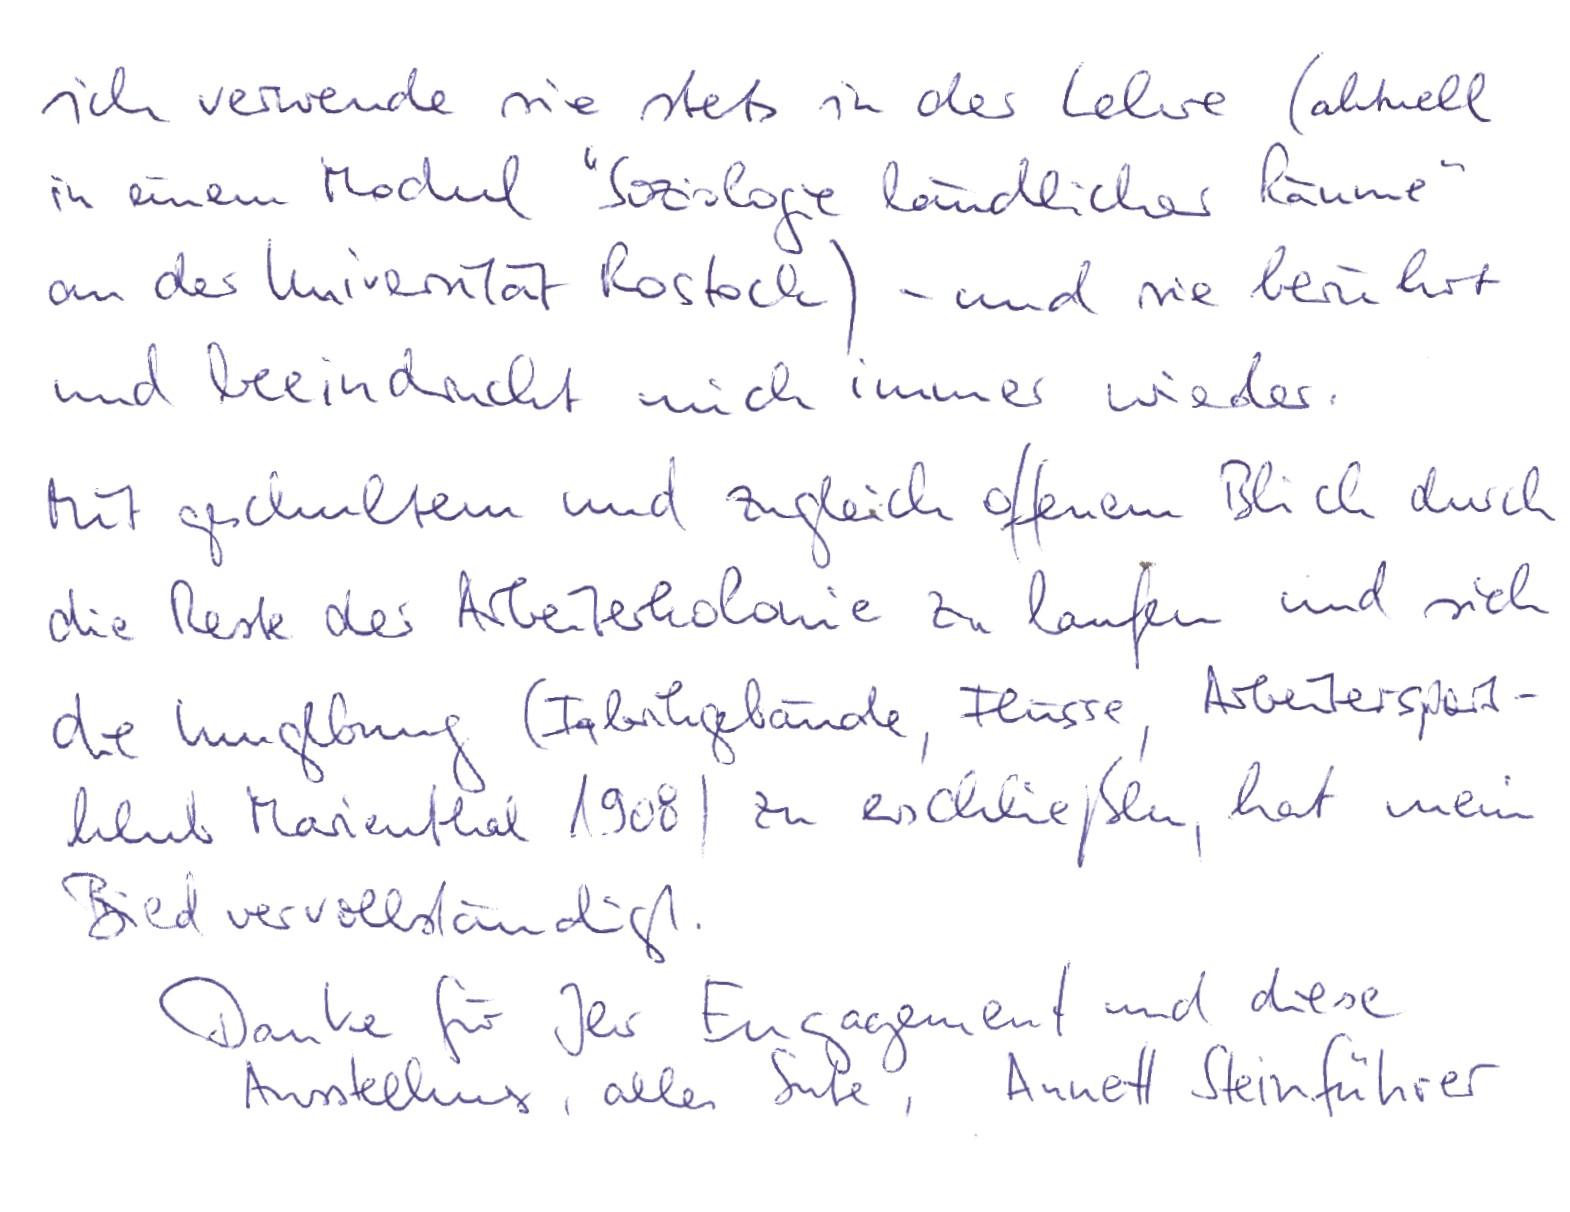 ich verwende sie stets in der Lehre (aktuell
in einem Modul "Soziologie ländlicher Räume"
an der Universität Rostock) - und sie berührt
und beeindruckt mich immer wieder.
Mit geschultem und zugleich offenem Blick durch
die Reste der Arbeiterkolonie zu laufen und sich
die Umgebung (Fabrikgebäude, Flüsse, Arbeitersport-
klub Marienthal 1908) zu erschließen, hat mein
Bild vervollständigt.
Danke für Ihr Engagement und diese
Ausstellung, alles Gute, Annett Steinführer